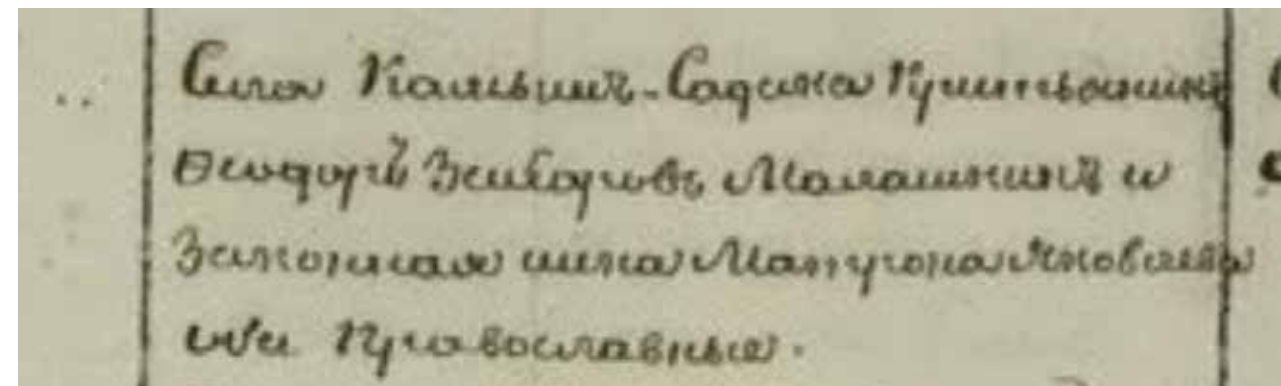 Села Камышинъ-Садика Крестьянинъ
Ѳеодоръ Малашкинъ и
Законная жена Матрона Яковлева
оба Православные.